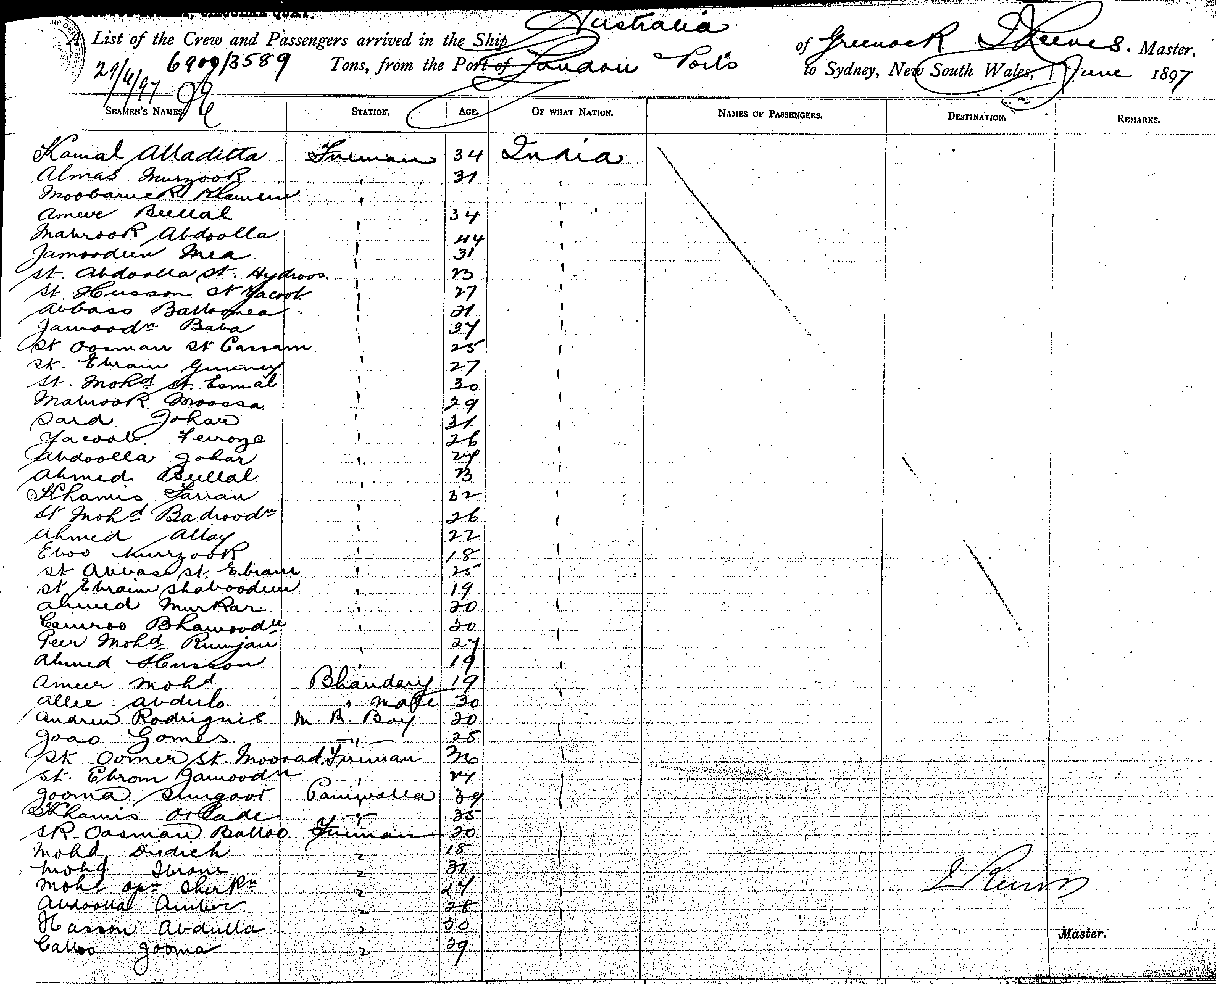 A List of the Crew and Passengers arrived in the Ship Australia of Greenock Master.
6900/3589 Tons, from the Port of London to Sydney, New South Wales, June 1897
29/4/97
SEAMEN'S NAMES. STATION. AGE. OF WHAT NATION. NAMES OF PASSENGERS. DESTINATION. REMARKS.
Kamal Alladitta Fireman 34 India
Almas Murzook 31 "
Moobaruck "
Beellal " 34 "
Mabrook Abdoolla " 44 "
Jamoodeen Mea " 31 "
St. Abdoolla St. Hydroos " 23 "
St. Husson St Yacoob " 27 "
Abbass 21 "
Jamoodn Baba " 37 "
St Oosman St Cassam " 25 "
St. Ebram " 27 "
St. Mohd St. Esmal " 30 "
Mabrook Moossa " 29 "
Said Johar " 31 "
Yacoob Feroze " 26 "
Abdoolla Johar " "
Ahmed Beellal " 23 "
Khamis " 32 "
St Mohd Badroodn " 26 "
Ahmed Allay " 22 "
Murzook " 18 "
St Abbas St. Ebram " 25 "
St Ebraim Shaboodeen " 19 "
Ahmed Murkar " 20 "
Bhawoodn " 30 "
Peer Mohd Rumjan " 27 "
Ahmed Husson " 19 "
Ameer Mohd Bhandery 19 "
Allee Abdulo " Mate 30 "
Andrew Rodrignis M. R. Boy 20 "
Joao Gomes " 25 "
St Oomer St. Moorad Fireman "
St. Ebrom Jamoodn " "
Jooma Paniwalla 39 "
Khamis " 35 "
SK. Oosman Balloo Fireman 20 "
Mohd " 18 "
Mohd " 31 "
Mohd " "
Abdoolla " 28 "
Hasson Abdulla " 30 "
Jooma " 29 "
Master.